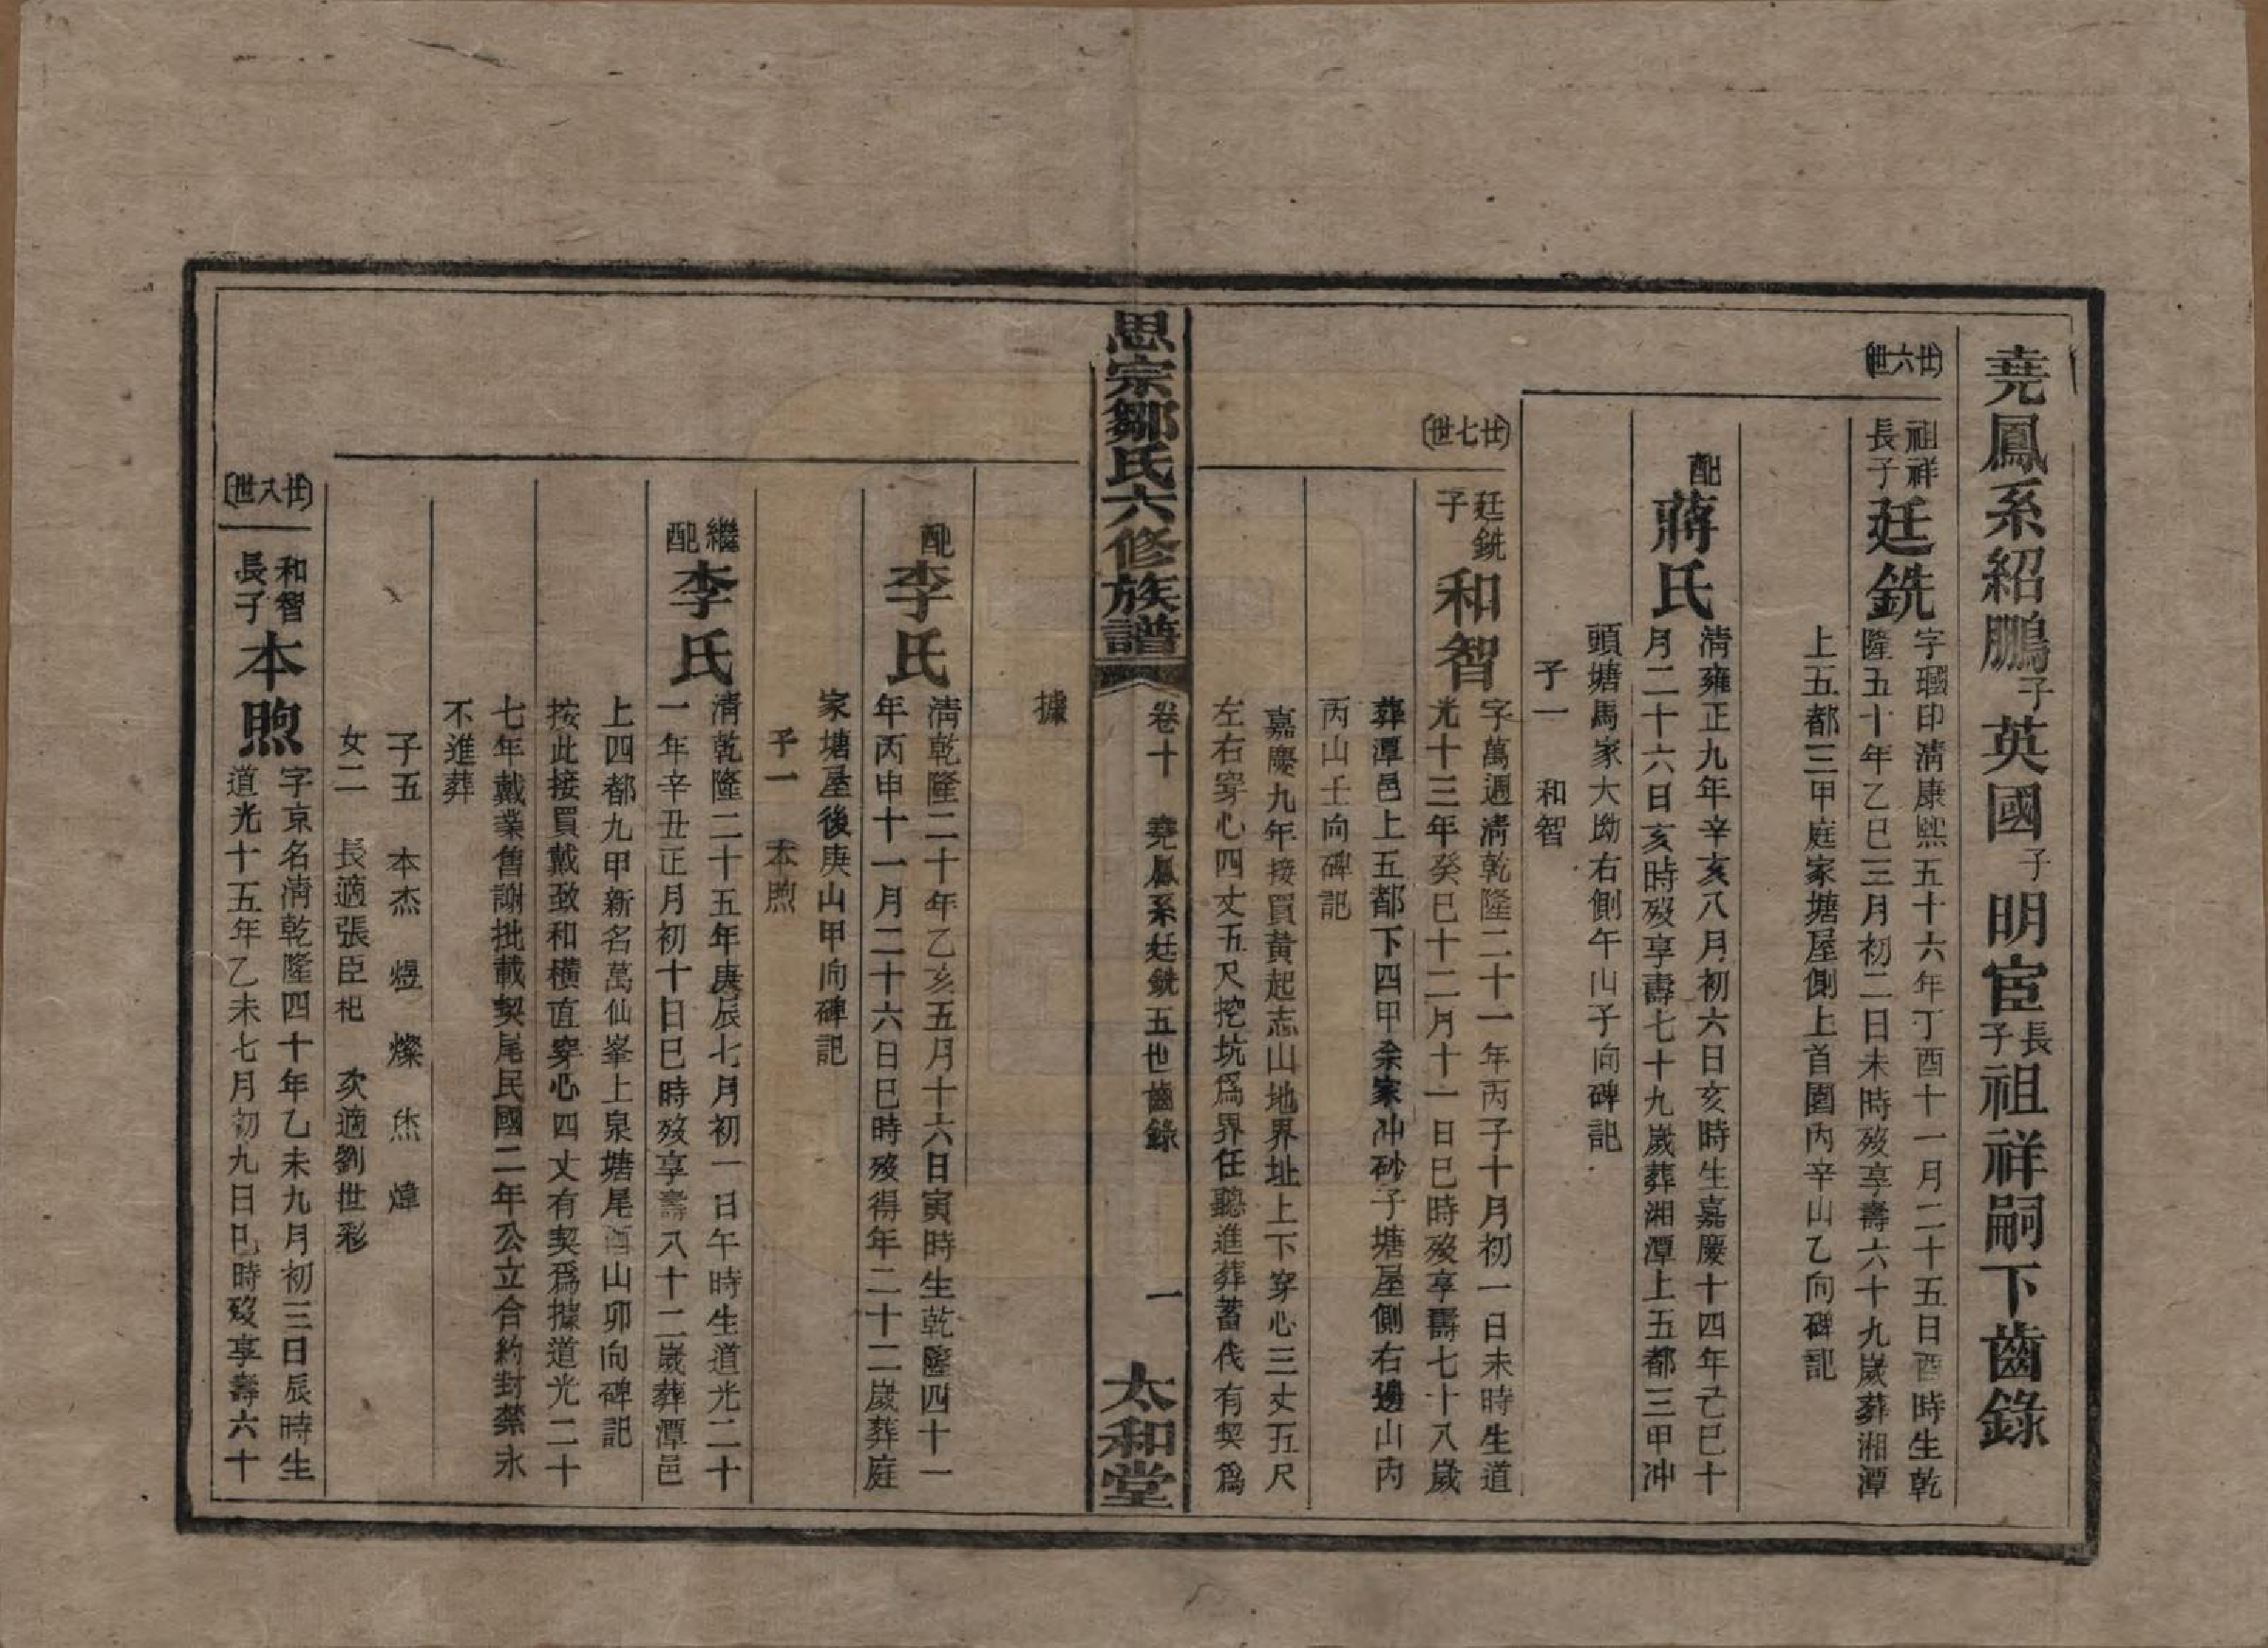 堯鳳系紹鵬子英國子明宦長子祖祥嗣下齒錄
廿六世
祖祥長子廷銑
字瓛印清康熙五十六年丁酉十一月二十五日酉時生乾
隆五十年乙巳三月初二日未時歿享壽六十九歲葬湘潭
上五都三甲庭家塘屋側上首園內辛山乙向碑記
配蔣氏
清雍正九年辛亥八月初六日亥時生嘉慶十四年己巳十
月二十六日亥時歿享壽七十九歲葬湘潭上五都三甲冲
頭塘馬家大坳右側午山子向碑記
子一 和智
廿七世
廷銑子和智
字萬週清乾隆二十一年丙子十月初一日未時生道
光十三年癸巳十二月十一日巳時歿享壽七十八歲
葬潭邑上五都下四甲余家冲砂子塘屋側右邊山內
丙山壬向碑記
嘉慶九年接買黃起志山地界址上下穿心三丈五尺
左右穿心四丈五尺挖坑爲界任聽進葬蓄伐有契爲
思宗鄒氏六修族譜
卷十 堯鳳系廷銑五世齒錄 一
太和堂
據
配李氏
清乾隆二十年乙亥五月十六日寅時生乾隆四十一
年丙申十一月二十六日巳時歿得年二十二歲葬庭
家塘屋後庚山甲向碑記
子一 本煦
繼配李氏
清乾隆二十五年庚辰七月初一日午時生道光二十
一年辛丑正月初十日巳時歿享壽八十二歲葬潭邑
上四都九甲新名萬仙峯上泉塘尾酉山卯向碑記
按此接買戴致和橫直穿心四丈有契爲據道光二十
七年戴業舊謝批載契尾民國二年公立合約封禁永
不進葬
子五 本杰 煜 燦 烋 煒
女二 長適張臣杞 次適劉世彩
廿八世
和智長子本煦
字京名清乾隆四十年乙未九月初三日辰時生
道光十五年乙未七月初九日巳時歿享壽六十